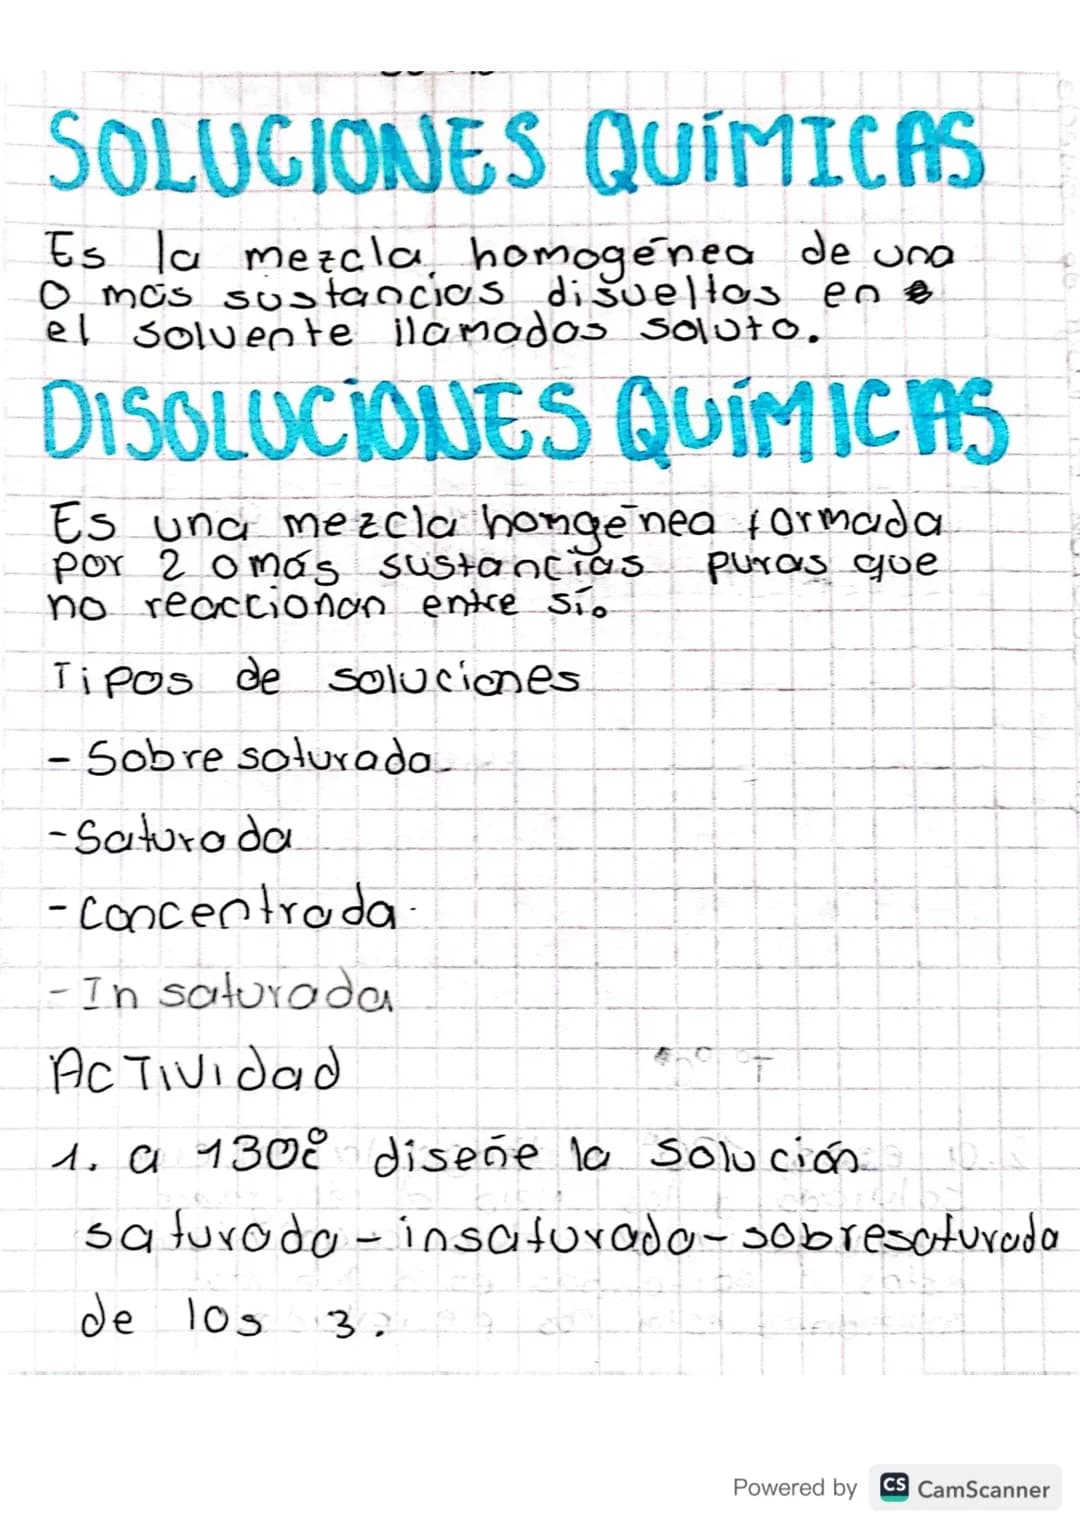 SOLUCIONES QUÍMICAS
Es la mezcla homogénea de una
o más sustancias disueltas en
el solvente llamados soluto.
DISOLUCIONES QUÍMICAS
Es una mezcla homgénea formada
por 2 o más sustancias puras que
no reaccionan entre sí.
Tipos de soluciones
- Sobre saturada
- Saturada
- Concentrada
- In saturada
ACTIVIdad
1. a 130°C diseñe la solución
saturada - insaturada - sobresaturada
de los 3.
Powered by CS CamScanner